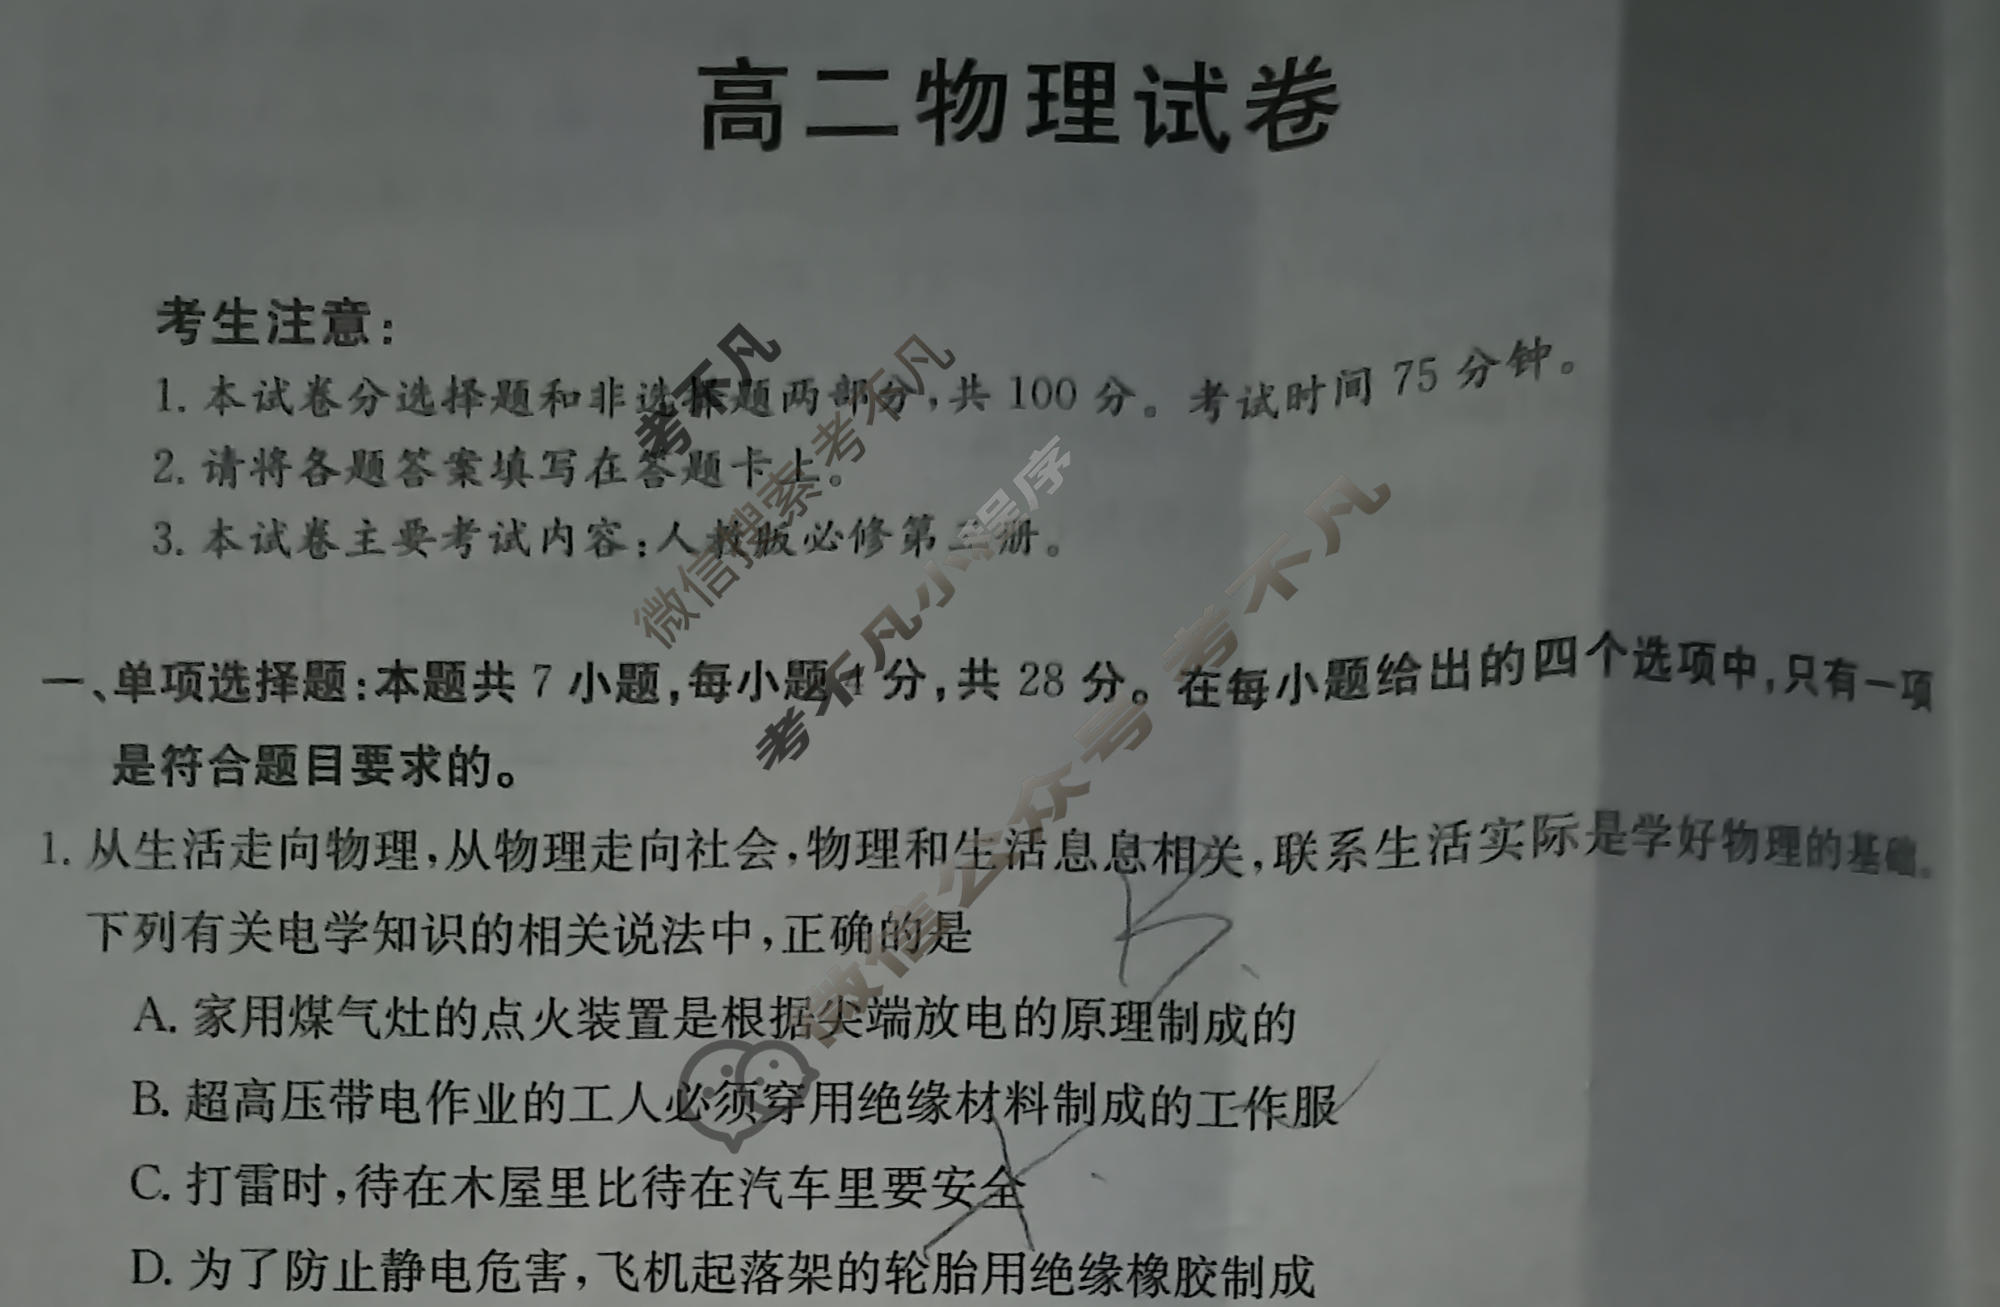 高二物理试卷
考生注意:
1. 本试卷分选择题和非选择题两部分,共 100 分。考试时间 75 分钟。
2. 请将各题答案填写在答题卡上。
3. 本试卷主要考试内容:人教版必修第三册。
一、单项选择题:本题共 7 小题,每小题 4 分,共 28 分。在每小题给出的四个选项中,只有一项
是符合题目要求的。
1. 从生活走向物理,从物理走向社会,物理和生活息息相关,联系生活实际是学好物理的基础。
下列有关电学知识的相关说法中,正确的是
A. 家用煤气灶的点火装置是根据尖端放电的原理制成的
B. 超高压带电作业的工人必须穿用绝缘材料制成的工作服
C. 打雷时,待在木屋里比待在汽车里要安全
D. 为了防止静电危害,飞机起落架的轮胎用绝缘橡胶制成
考不凡
微信搜索考不凡
考不凡小程序
微信公众号 考不凡